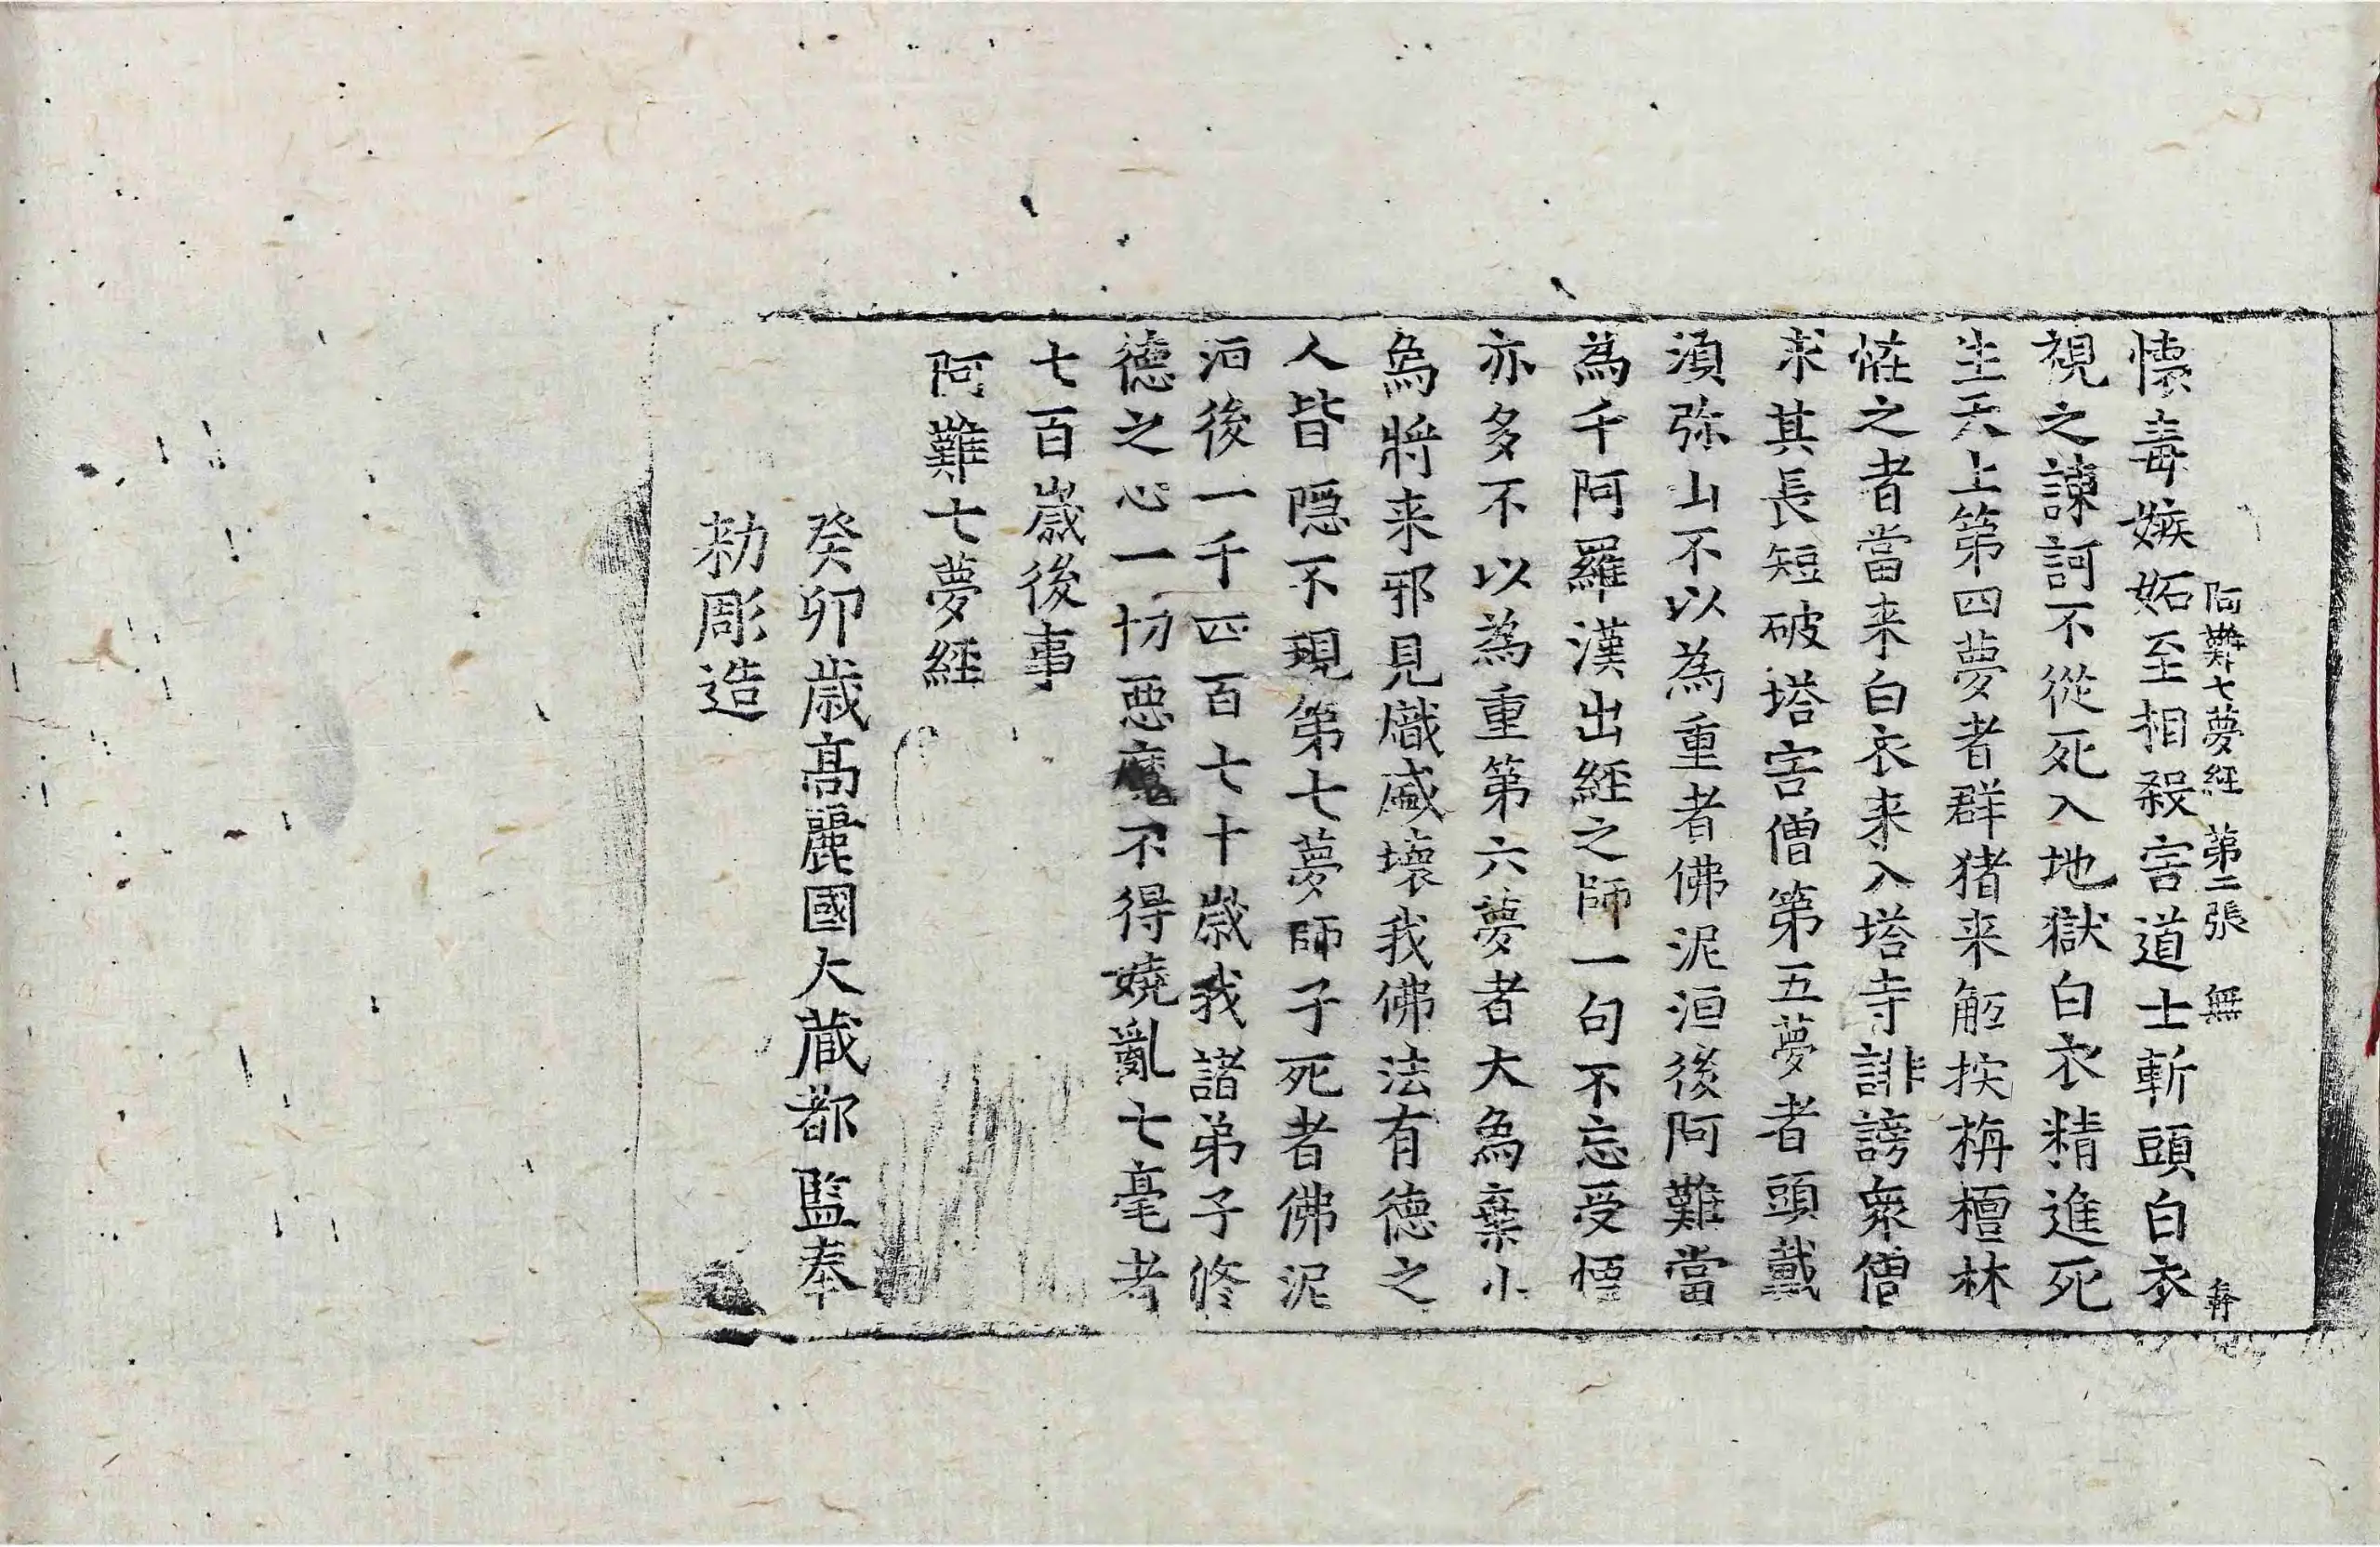 阿難七夢經　第二張　無
懐毒嫉妬至相殺害道士斬頭白衣
視之諫訶不從死入地獄白衣精進死
生天上第四夢者群猪来觝揬栴檀林
恠之者當来白衣来入塔寺誹謗衆僧
求其長短破塔害僧第五夢者頭戴
湏弥山不以為重者佛泥洹後阿難當
為千阿羅漢出經之師一句不忘受悟
亦多不以為重第六夢者大為棄小
為將来邪見熾盛壞我佛法有德之
人皆隠不現第七夢師子死者佛泥
洹後一千四百七十歲我諸弟子修
德之心一切惡魔不得嬈亂七毫者
七百歲後事
阿難七夢經
癸卯歲高麗國大藏都監奉
勑彫造